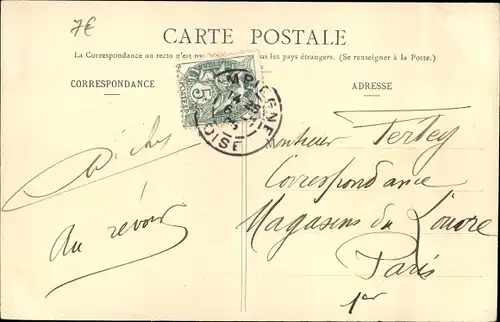 7€
CARTE POSTALE
La Correspondance au recto n'est pas les pays étrangers. (Se renseigner à la Poste.)
CORRESPONDANCE
ADRESSE
5
MPIEGNE
OISE
au révoir
Monsieur Tertey
Correspondance
Magasens du Louvre
Paris
1er